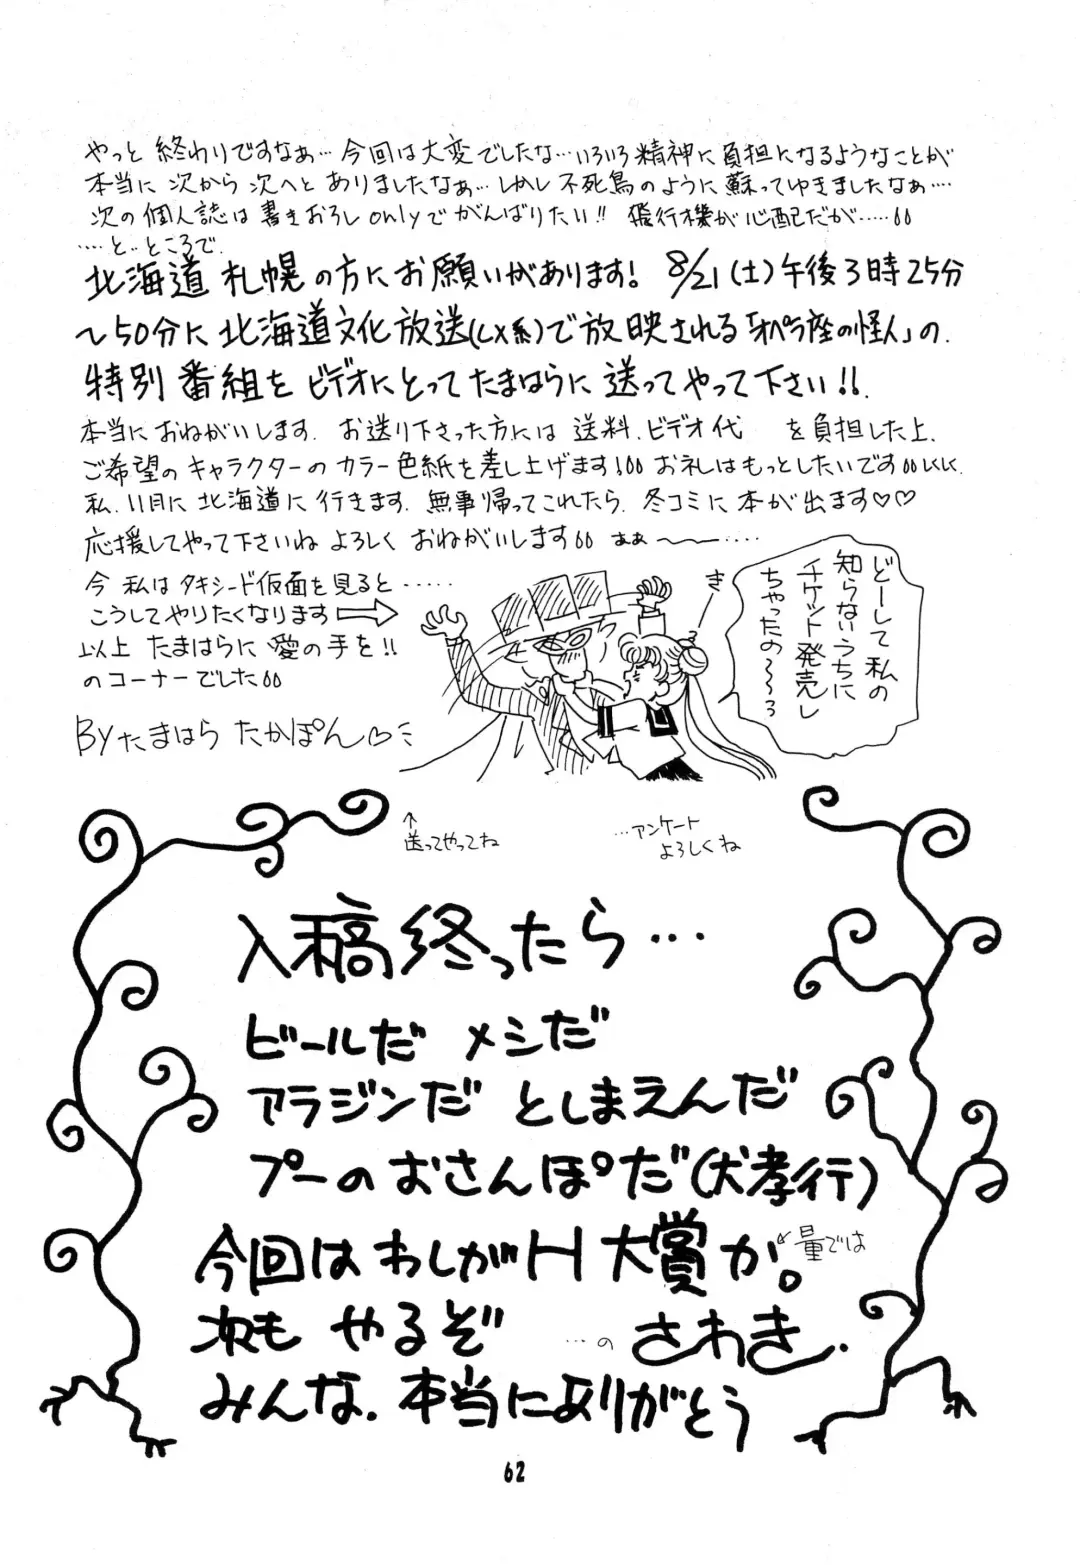 やっと 終わりですなぁ… 今回は大変でしたな…いろいろ精神に負担になるようなことが
本当に 次から 次へと ありましたなぁ… しかし 不死鳥のように 蘇ってゆきましたなぁ….
次の個人誌は書きおろし onlyで がんばりたい!! 飛行機が心配だが……
….と‥ところで.
北海道 札幌の方にお願いがあります! 8/21(土)午後3時25分
〜50分に北海道文化放送(CX系)で放映される「オペラ座の怪人」の.
特別番組をビデオにとってたまはらに送ってやって下さい!!.
本当におねがいします. お送り下さった方には 送料.ビデオ代 を負担した上.
ご希望のキャラクターの カラー色紙を差し上げます! お礼はもっとしたいです
私.11月に北海道に行きます. 無事帰ってこれたら. 冬コミに本が出ます♡♡
応援してやって下さいね よろしく おねがいします あぁ〜….
今 私は タキシード仮面を見ると ‥‥‥
こうしてやりたくなります⇨
以上 たまはらに 愛の手を!!
のコーナーでした
Byたまはら たかぽん♡
き
どーして私の
知らないうちに
イケット発売し
ちゃったの〜〜〜
↑
送ってやってね
…アンケート
よろしくね
入稿終ったら…
ビールだ メシだ
アラジンだ としまえんだ
プーのおさんぽだ(犬孝行)
今回はわしがH大賞か。
量では
次も やるぞ …の さわき.
みんな.本当にありがとう
62